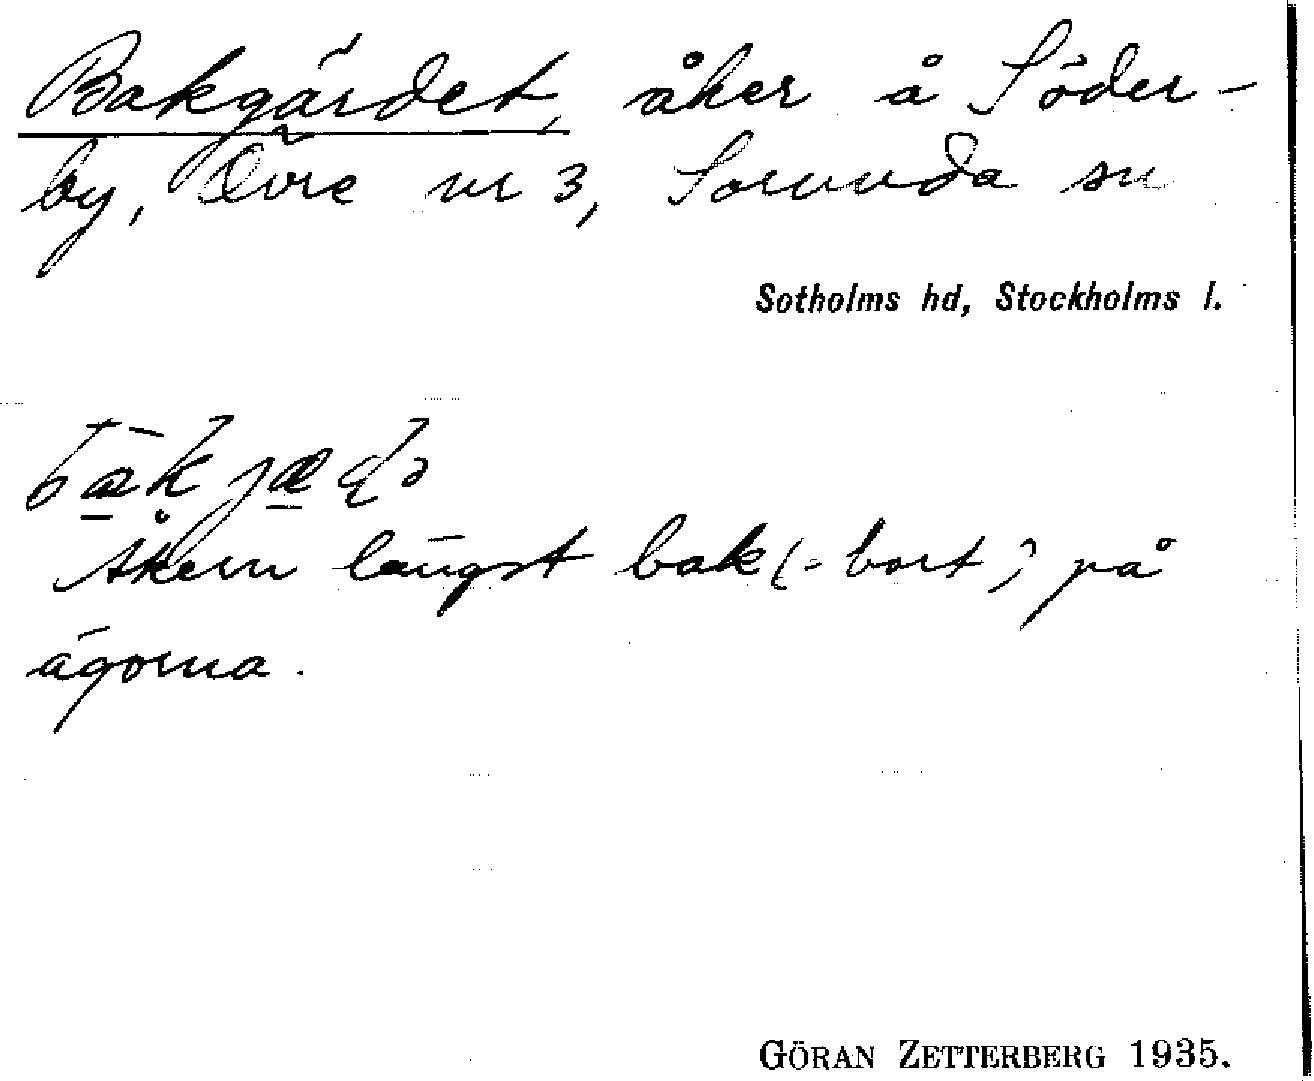 Bakgärdet, åker å Söder-
by, Övre nr 3, Sorunda sn
Sotholms hd, Stockholms l.
Åkern längst bak (= bort) på
ägorna.
GÖRAN ZETTERBERG 1935.